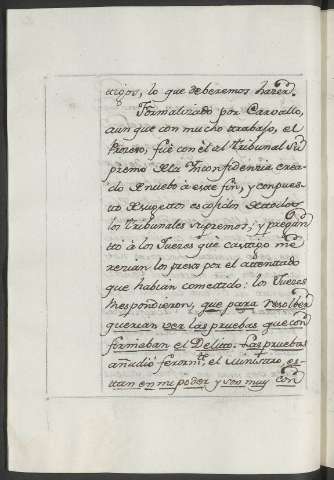 migos, lo que deberemos hazer.
Formalizado por Carvallo,
aunque con mucho travajo, el
Proceso, fué con él al Tribunal Su
premo de la Inconfidencia crea-
do de nuebo á este fin, y compues
to de sugetos escogidos de todos
los tribunales supremos; y pregun
tó á los Jueces que castigo me
recian los presos por el attentado
que habian comettido: los Jueces
Respondieron, que para resolber
querian ver las pruebas que con
firmaban el Delito. Las pruebas
añadió feroz.te el Ministro, es
tan en mi poder y son muy con